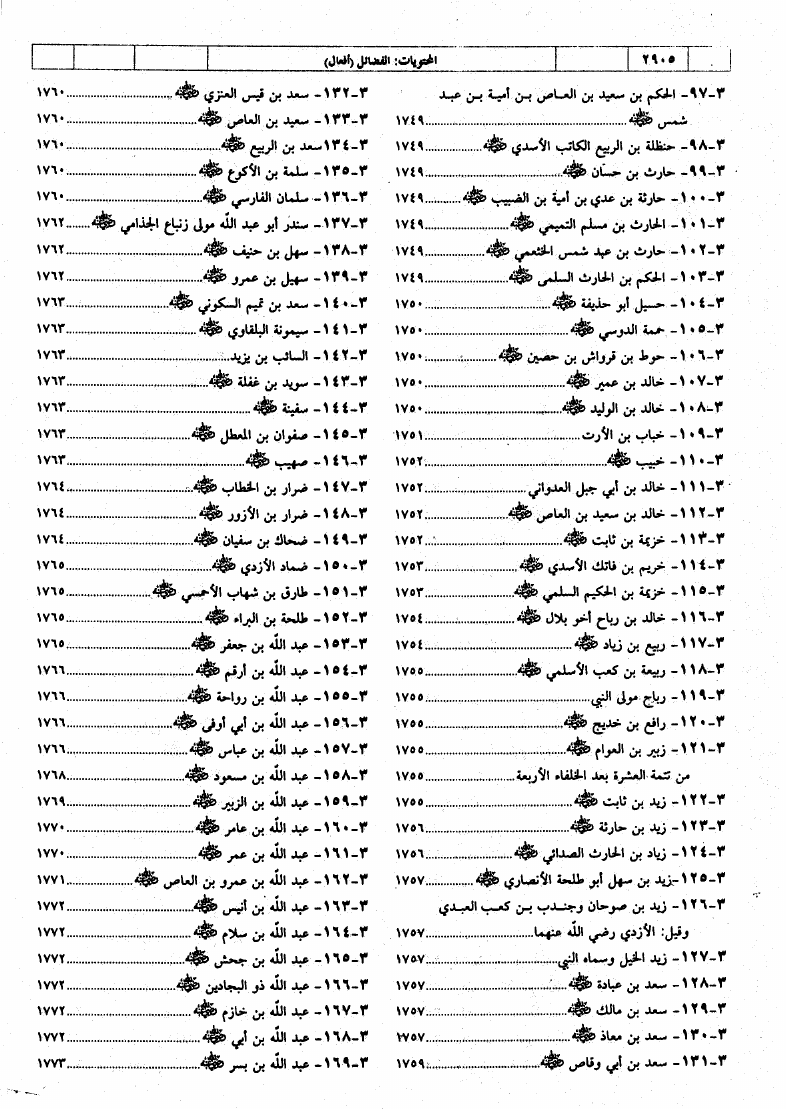 ٢٩٠٥
المحتويات: الفضائل (أفعال)
٣-٩٧- الحكم بن سعيد بن العـاص بـن أميـة بـن عبـد
شمس ﷺ ١٧٤٩
٣-٩٨- حنظلة بن الربيع الكاتب الأسدي ﷺ ١٧٤٩
٣-٩٩- حارث بن حسان ﷺ ١٧٤٩
٣-١٠٠- حارثة بن عدي بن أمية بن الضبيب ﷺ ١٧٤٩
٣-١٠١- الحارث بن مسلم التميمي ﷺ ١٧٤٩
٣-١٠٢- حارث بن عبد شمس الخثعمي ﷺ ١٧٤٩
٣-١٠٣- الحكم بن الحارث السلمى ﷺ ١٧٤٩
٣-١٠٤- حسيل أبو حذيفة ﷺ ١٧٥٠
٣-١٠٥- حممة الدوسي ﷺ ١٧٥٠
٣-١٠٦- حوط بن قرواش بن حصين ﷺ ١٧٥٠
٣-١٠٧- خالد بن عمير ﷺ ١٧٥٠
٣-١٠٨- خالد بن الوليد ﷺ ١٧٥٠
٣-١٠٩- خباب بن الأرت ١٧٥١
٣-١١٠- خبيب ﷺ ١٧٥٢
٣-١١١- خالد بن أبي جبل العدواني ١٧٥٢
٣-١١٢- خالد بن سعيد بن العاص ﷺ ١٧٥٢
٣-١١٣- خزيمة بن ثابت ﷺ ١٧٥٢
٣-١١٤- خريم بن فاتك الأسدي ﷺ ١٧٥٣
٣-١١٥- خزيمة بن الحكيم السلمي ﷺ ١٧٥٣
٣-١١٦- خالد بن رباح أخو بلال ﷺ ١٧٥٤
٣-١١٧- ربيع بن زياد ﷺ ١٧٥٤
٣-١١٨- ربيعة بن كعب الأسلمي ﷺ ١٧٥٥
٣-١١٩- رباح مولى النبي ١٧٥٥
٣-١٢٠- رافع بن خديج ﷺ ١٧٥٥
٣-١٢١- زبير بن العوام ﷺ ١٧٥٥
من تتمة العشرة بعد الخلفاء الأربعة ١٧٥٥
٣-١٢٢- زيد بن ثابت ﷺ ١٧٥٥
٣-١٢٣- زيد بن حارثة ﷺ ١٧٥٦
٣-١٢٤- زياد بن الحارث الصدائي ﷺ ١٧٥٦
٣-١٢٥-زيد بن سهل أبو طلحة الأنصاري ﷺ ١٧٥٧
٣-١٢٦- زيد بن صوحان وجنـدب بـن كعـب العبـدي
وقيل: الأزدي رضي الله عنهما ١٧٥٧
٣-١٢٧- زيد الخيل وسماه النبي ١٧٥٧
٣-١٢٨- سعد بن عبادة ﷺ ١٧٥٧
٣-١٢٩- سعد بن مالك ﷺ ١٧٥٧
٣-١٣٠- سعد بن معاذ ﷺ ٢٧٥٧
٣-١٣١- سعد بن أبي وقاص ﷺ ١٧٥٩
٣-١٣٢- سعد بن قيس العنزي ﷺ ١٧٦٠
٣-١٣٣- سعيد بن العاص ﷺ ١٧٦٠
٣-١٣٤سعد بن الربيع ﷺ ١٧٦٠
٣-١٣٥- سلمة بن الأكوع ﷺ ١٧٦٠
٣-١٣٦- سلمان الفارسي ﷺ ١٧٦٠
٣-١٣٧- سندر أبو عبد الله مولى زنباع الجذامي ﷺ ١٧٦٢
٣-١٣٨- سهل بن حنيف ﷺ ١٧٦٢
٣-١٣٩- سهيل بن عمرو ﷺ ١٧٦٢
٣-١٤٠- سعد بن تميم السكوني ﷺ ١٧٦٣
٣-١٤١- سيمونة البلقاوي ﷺ ١٧٦٣
٣-١٤٢- السائب بن يزيد ١٧٦٣
٣-١٤٣- سويد بن غفلة ﷺ ١٧٦٣
٣-١٤٤- سفينة ﷺ ١٧٦٣
٣-١٤٥- صفوان بن المعطل ﷺ ١٧٦٣
٣-١٤٦- صهيب ﷺ ١٧٦٣
٣-١٤٧- ضرار بن الخطاب ﷺ ١٧٦٤
٣-١٤٨- ضرار بن الأزور ﷺ ١٧٦٤
٣-١٤٩- ضحاك بن سفيان ﷺ ١٧٦٤
٣-١٥٠- ضماد الأزدي ﷺ ١٧٦٥
٣-١٥١- طارق بن شهاب الأحمسي ﷺ ١٧٦٥
٣-١٥٢- طلحة بن البراء ﷺ ١٧٦٥
٣-١٥٣- عبد الله بن جعفر ﷺ ١٧٦٥
٣-١٥٤- عبد الله بن أرقم ﷺ ١٧٦٦
٣-١٥٥- عبد الله بن رواحة ﷺ ١٧٦٦
٣-١٥٦- عبد الله بن أبي أوفى ﷺ ١٧٦٦
٣-١٥٧- عبد الله بن عباس ﷺ ١٧٦٦
٣-١٥٨- عبد الله بن مسعود ﷺ ١٧٦٨
٣-١٥٩- عبد الله بن الزبير ﷺ ١٧٦٩
٣-١٦٠- عبد الله بن عامر ﷺ ١٧٧٠
٣-١٦١- عبد الله بن عمر ﷺ ١٧٧٠
٣-١٦٢- عبد الله بن عمرو بن العاص ﷺ ١٧٧١
٣-١٦٣- عبد الله بن أنيس ﷺ ١٧٧٢
٣-١٦٤- عبد الله بن سلام ﷺ ١٧٧٢
٣-١٦٥- عبد الله بن جحش ﷺ ١٧٧٢
٣-١٦٦- عبد الله ذو البجادين ﷺ ١٧٧٢
٣-١٦٧- عبد الله بن خازم ﷺ ١٧٧٢
٣-١٦٨- عبد الله بن أبي ﷺ ١٧٧٢
٣-١٦٩- عبد الله بن بسر ﷺ ١٧٧٣